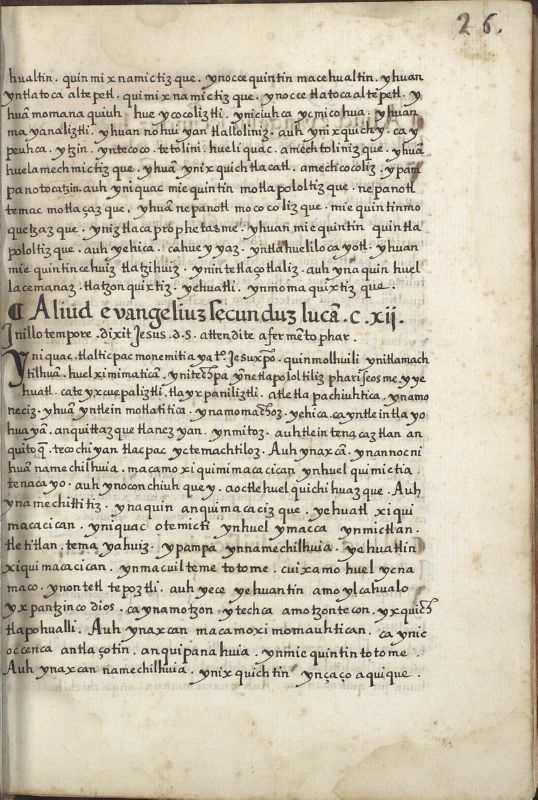 26.
hualtin. quin mix namictiz que. ynocce quintin mace hualtin. yhuan
yntlatoca altepetl. quimix namictiz que. ynocce tlatoca altepetl. y
huā momana quiuh. hue ycocoliztli. yniciuhca ycmicohua. yhuan
ma yanaliztli. yhuan nohui yan tlalloliniz. auh ynixquichy. ca y
peuhca. ytzin. yntecoco. tetolini. hueliquac. amechtoliniz que. yhuā
huelamechmictiz que. yhuā ynix quich tlacatl. amechcocoliz. ypam
panotocatzin. auh yniquac miequintin motlapololtiz que. nepanotl
temac motlaçaz que. yhuā nepanotl mococoliz que. miequintinmo
quetzaz que. yniztlaca prophetasme. yhuan miequintin quintla
pololtiz que. auh yehica. cahueyyaz. yntlahuelilocayotl. yhuan
miequintin cehuiz tlatzihuiz. ynintetlaçotlaliz. auh ynaquin huel
lacemanaz. tlatzonquixtiz. yehuatl. ynmomaquixtiz que.
¶ Aliud evangeliuz secunduz lucā. c. xij.
Inillo tempore. dixit Jesus. d. s. attendite a fermēto phar.
Yniquac. tlalticpac monemitiaya tº. Jesu xp̄o. quinmolhuili ynitlamach
tilhuā. huelximimatica. ynitechpa ynetlapololtiliz phariseosme. yye
huatl. cateyxcuepaliztli. tlayxpaniliztli. atletla pachiuhtica. ynamo
neciz. yhuā yntlein motlatitica. ynamomachoz. yehica. ca yntlein tlayo
huayā. anquittazque tlanezyan. ynmitoz. auhtlein tenacaztlan an
quitoq̄. tecochiyan tlacpac yctemachtiloz. Auh ynaxcā. ynannocni
huān namechilhuia. macamo xiquimimacacican ynhuel quimictia
tenacayo. auh ynoconchiuhquey. aoctlehuel quichihuazque. Auh
ynamechittitiz. ynaquin anquimacaciz que. yehuatl xiqui
macacican. yniquac otemicti ynhuel ymacca ynmictlan.
tletitlan. tema yahuiz. ypampa ynnamechilhuia. yehuatlin
xiquimacacican. ynmacuilteme totome. cuixamo huel ycna
maco. ynontetl tepoztli. auh yece yehuantin amoylcahualo
yxpantzinco dios. caynamotzon ytechca amotzontecon. yxquich
tlapohualli. Auh ynaxcan macamoximomauhtican. caynic
occenca antlaçotin. anquipanahuia. ynmiequintin totome.
Auh ynaxcan namechilhuia. ynixquichtin ynçaço aquique.